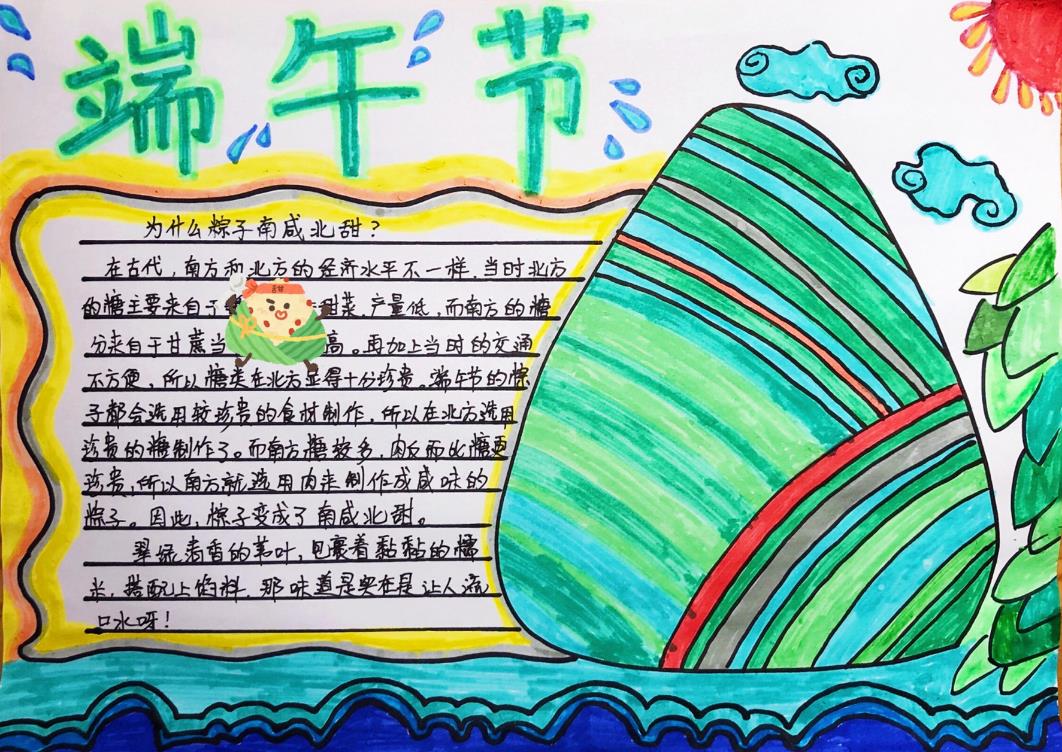 端午节
为什么粽子南咸北甜?
在古代,南方和北方的经济水平不一样.当时北方
的糖主要来自于 甜菜.产量低,而南方的糖
分来自于甘蔗当 高。再加上当时的交通
不方便,所以糖类在北方显得十分珍贵.端午节的粽
子都会选用较珍贵的食材制作.所以在北方选用
珍贵的糖制作了。而南方糖较多,肉反而比糖更
珍贵,所以南方就选用肉来制作成咸味的
粽子。因此,粽子变成了南咸北甜。
翠绿清香的苇叶,包裹着黏黏的糯
米,搭配上馅料.那味道是实在是让人流
口水呀!
甜